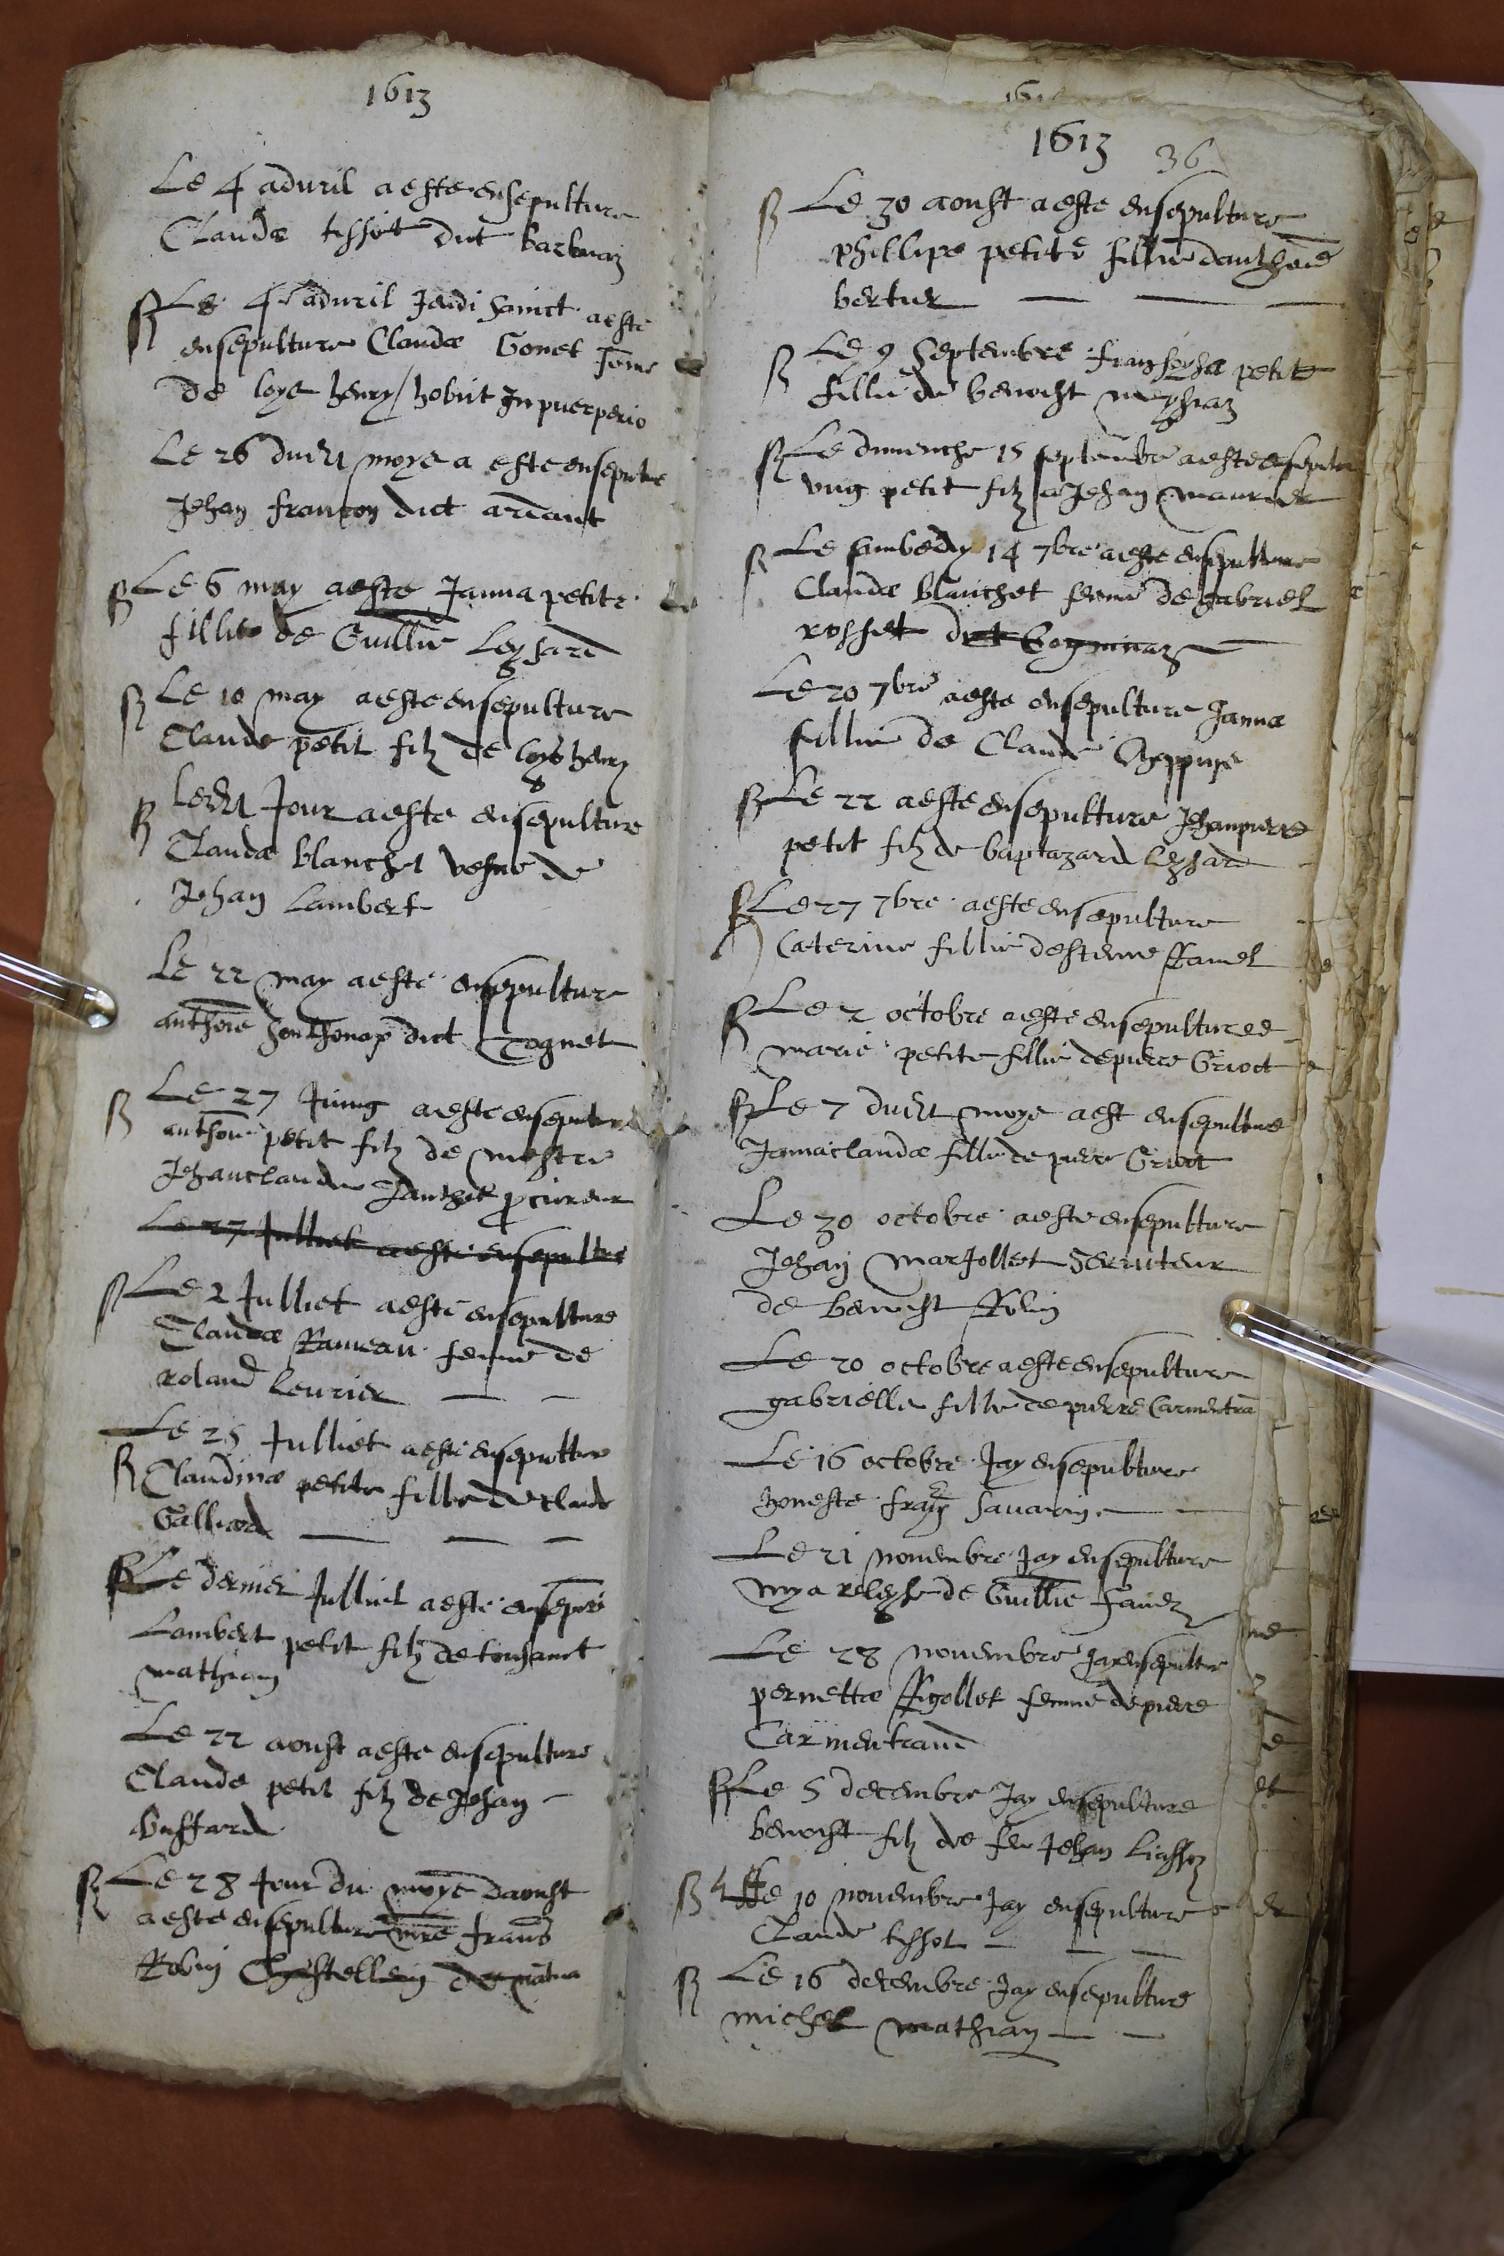 1613
Le 4 aduril a este ensepulture
Claude tissot dit barbuaz
Le 4 aduril Jeudi sainct a este
ensepulture Claudæ Gonet feme
de loys henry / hobiit In puerperio
Le 26 dudit moys a este ensepultre
Jehan françon dict
Le 6 may a este Janna petite
fillie de Guillie
Le 10 may a este ensepulture
Claude petit filz de loys henry
ledit Jour a este ensepulture
Claudæ blanchet vefue de
Jehan Lambert
Le 22 may a este ensepulture
anthoie dict
Le 27 Juing a este ensepulture
anthoie petit filz de mestre
Jehanclaude procureur
Le 27 Julliet a este ensepultre
Le 2 Julliet a este ensepulture
Claudæ Rameau femme de
roland leurier
Le 25 Julliet a este ensepultture
Claudinæ petite fillie de claude
Galliard
Le dernier Julliet a este
Lambert petit filz de tonsainct
mathian
Le 22 aoust a este ensepulture
Claude petit filz de Jehan
buffard
Le 28 Jour du moys daoust
a este ensepulture mre frans
Robin Chastellein de
1613
36
Le 30 aoust a este ensepulture
phillipe petite fillie danthoie
bertier
Le 9 Septembre petite
fillie de benoist
Le dimenche 15 septembre a este ensepultu
vng petit filz a Jehan maurier
Le sambedy 14 7bre a este ensepulture
Claudæ blanchet femme de gabriel
rosset dict
Le 20 7bre a este ensepulture Janna
fillie de Claude
Le 22 a este ensepulture Jehanpierre
petit filz de baptazard
Le 27 7bre a este ensepulture
Caterine fillie desteue
Le 2 octobre a este ensepulturee
marie petite fillie de pierre Griot
Le 7 dudit moys a est ensepulture
Jannaclaudæ fillie de pierre Griot
Le 30 octobre a este ensepulture
Jehan marJollet seruiteur
de benoist Rolin
Le 20 octobre a este ensepulture
gabrielle fillie de pierre Carmentra
Le 16 octobre Jay ensepulture
honeste Sauarin
Le 21 nouembre Jay ensepulture
de Guillie
Le 28 nouembre Jay ensepultre
pernettæ femme de pierre
Carmentrand
Le 5 decembre Jay ensepulture
benoist filz de feu Jehan
Le 10 nouembre Jay ensepulture
Claude tissot
Le 16 decembre Jay ensepulture
michel mathian